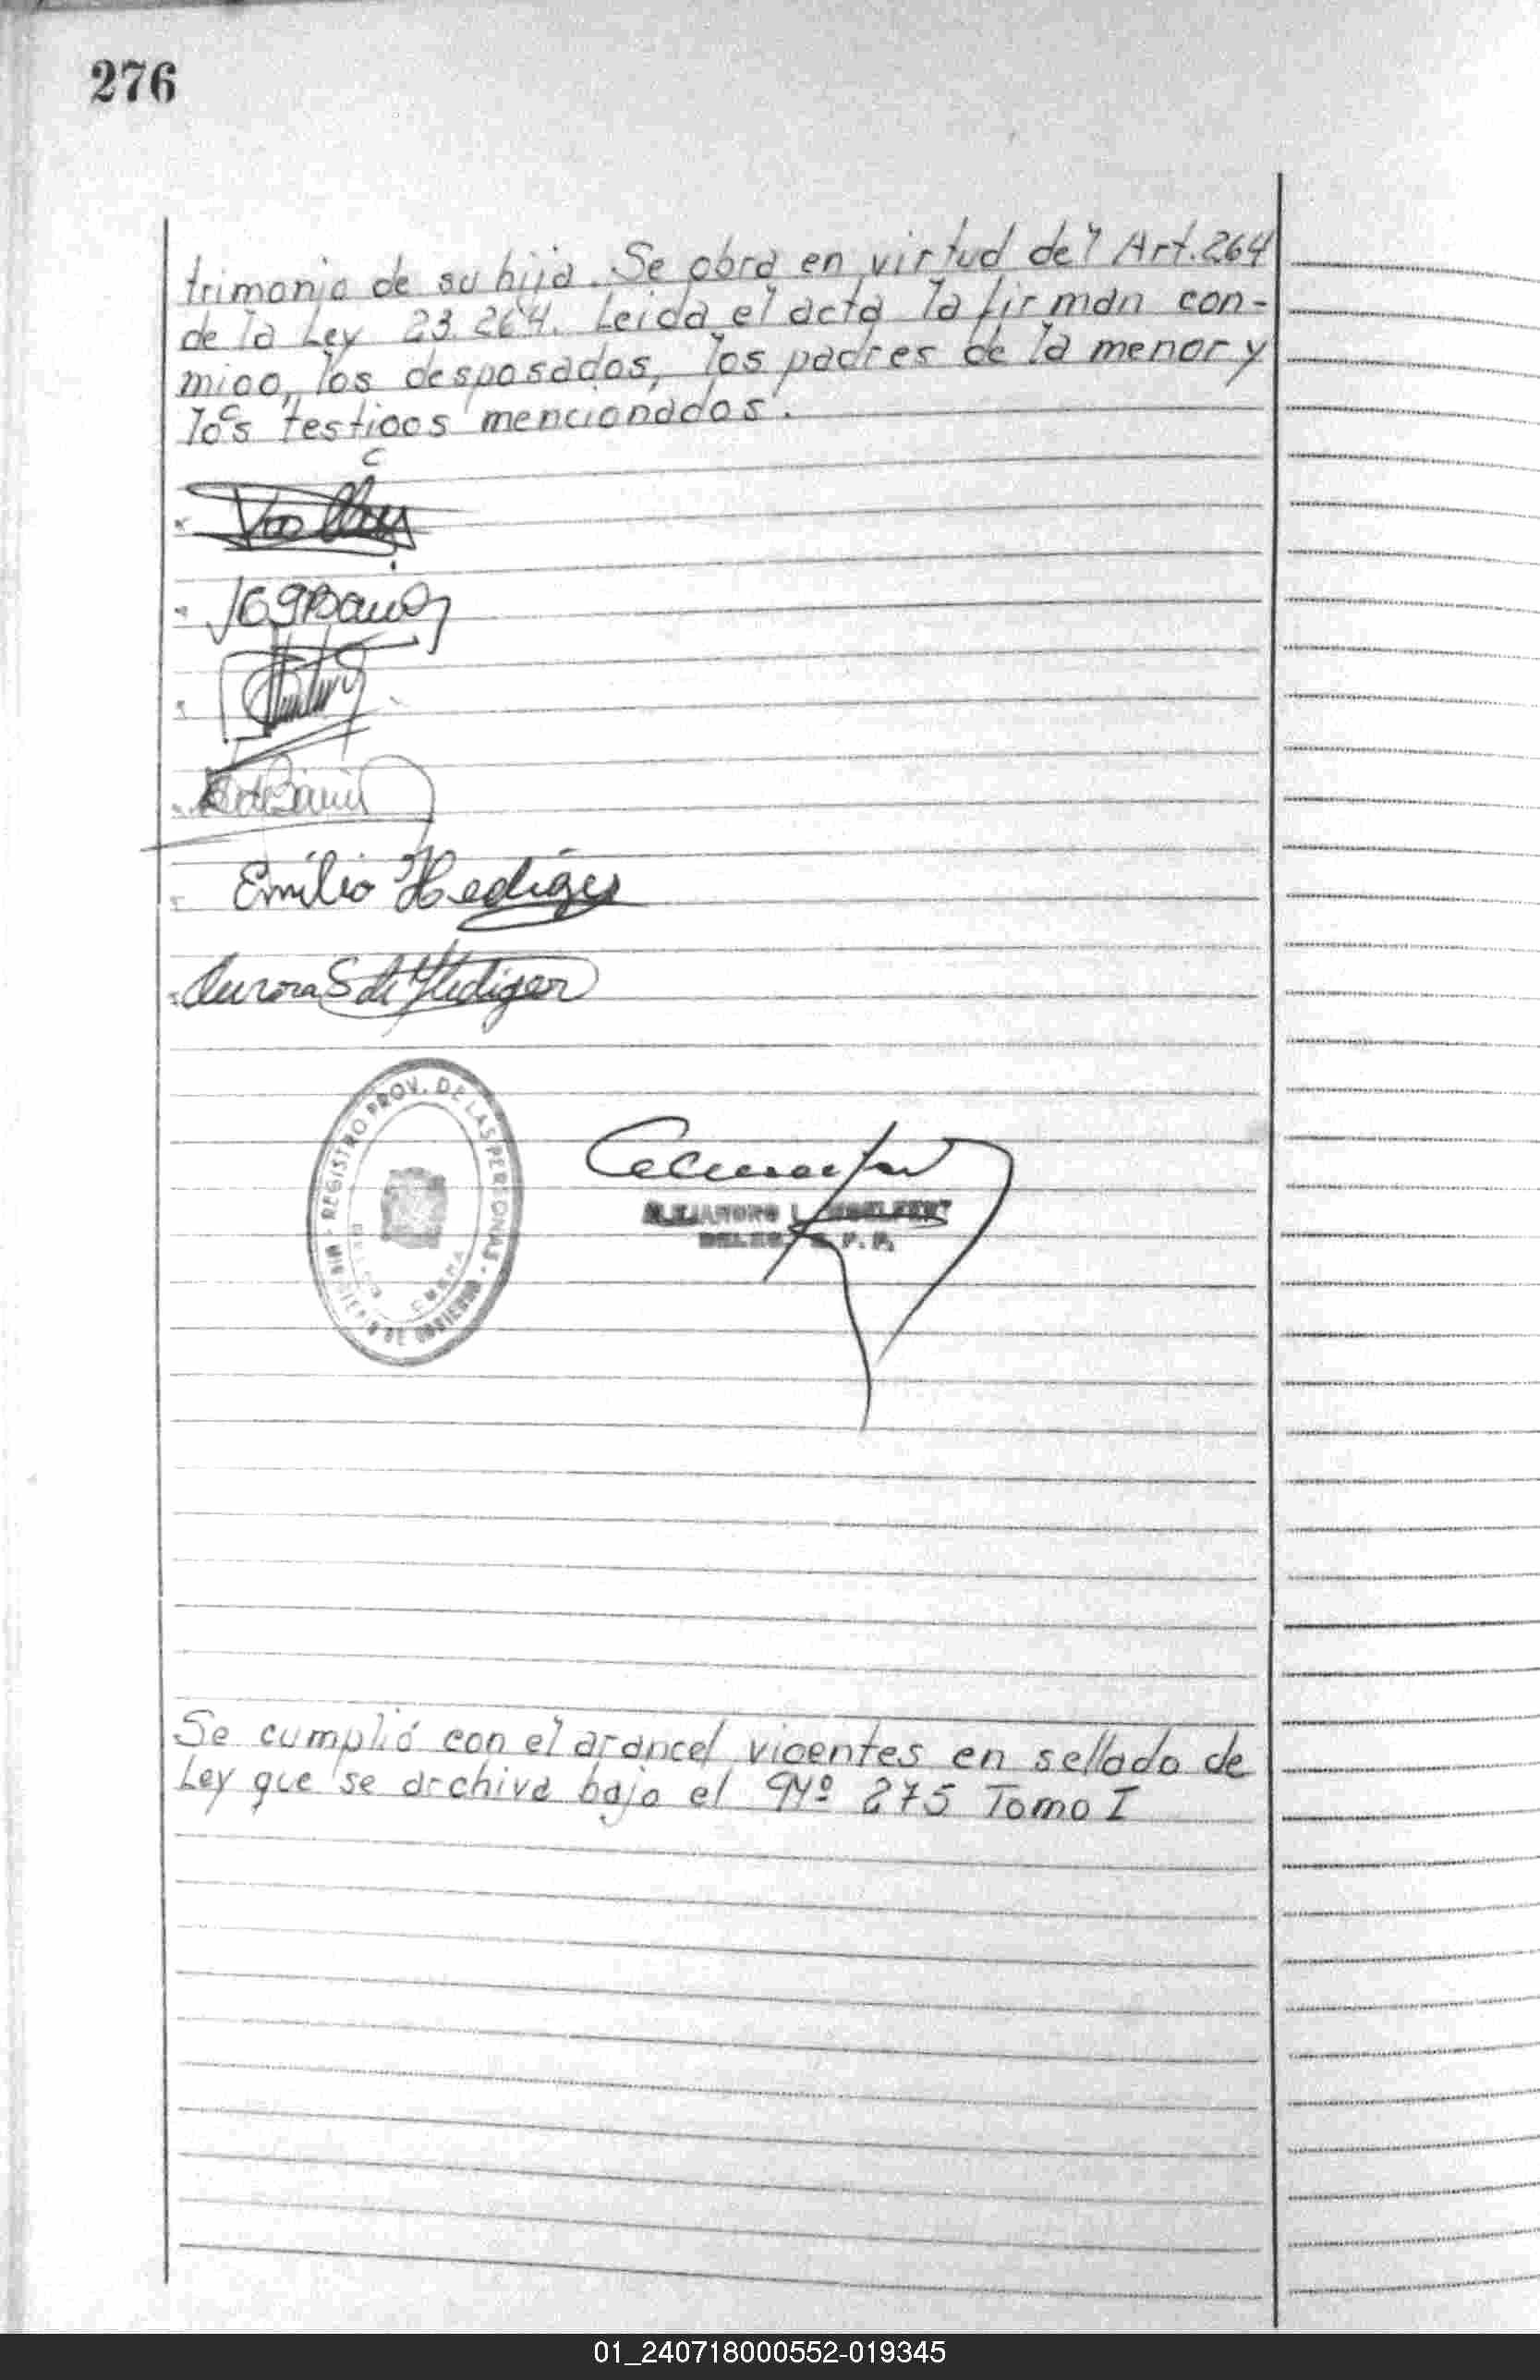 276
trimonio de su hija. Se obra en virtud del Art. 264
de la Ley 23.264. Leida el acta la firman con-
migo, los desposados, los padres de la menor y
los testigos mencionados.
Emilio Hediger
Aurora S de Hediger
REGISTRO PROV. DE LAS PERSONAS - MINISTERIO DE GOBIERNO -
ALEJANDRO L.
Se cumplió con el arancel vigentes en sellado de
Ley que se archiva bajo el Nº 275 Tomo I
01_240718000552-019345